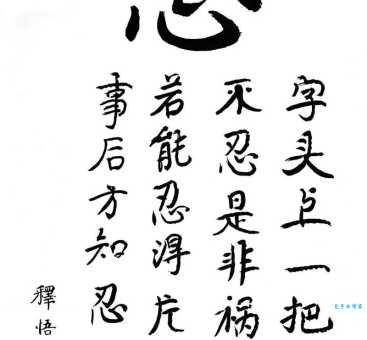 字头上一把
不忍是非祸
若能忍得片
事后方知忍
釋悟